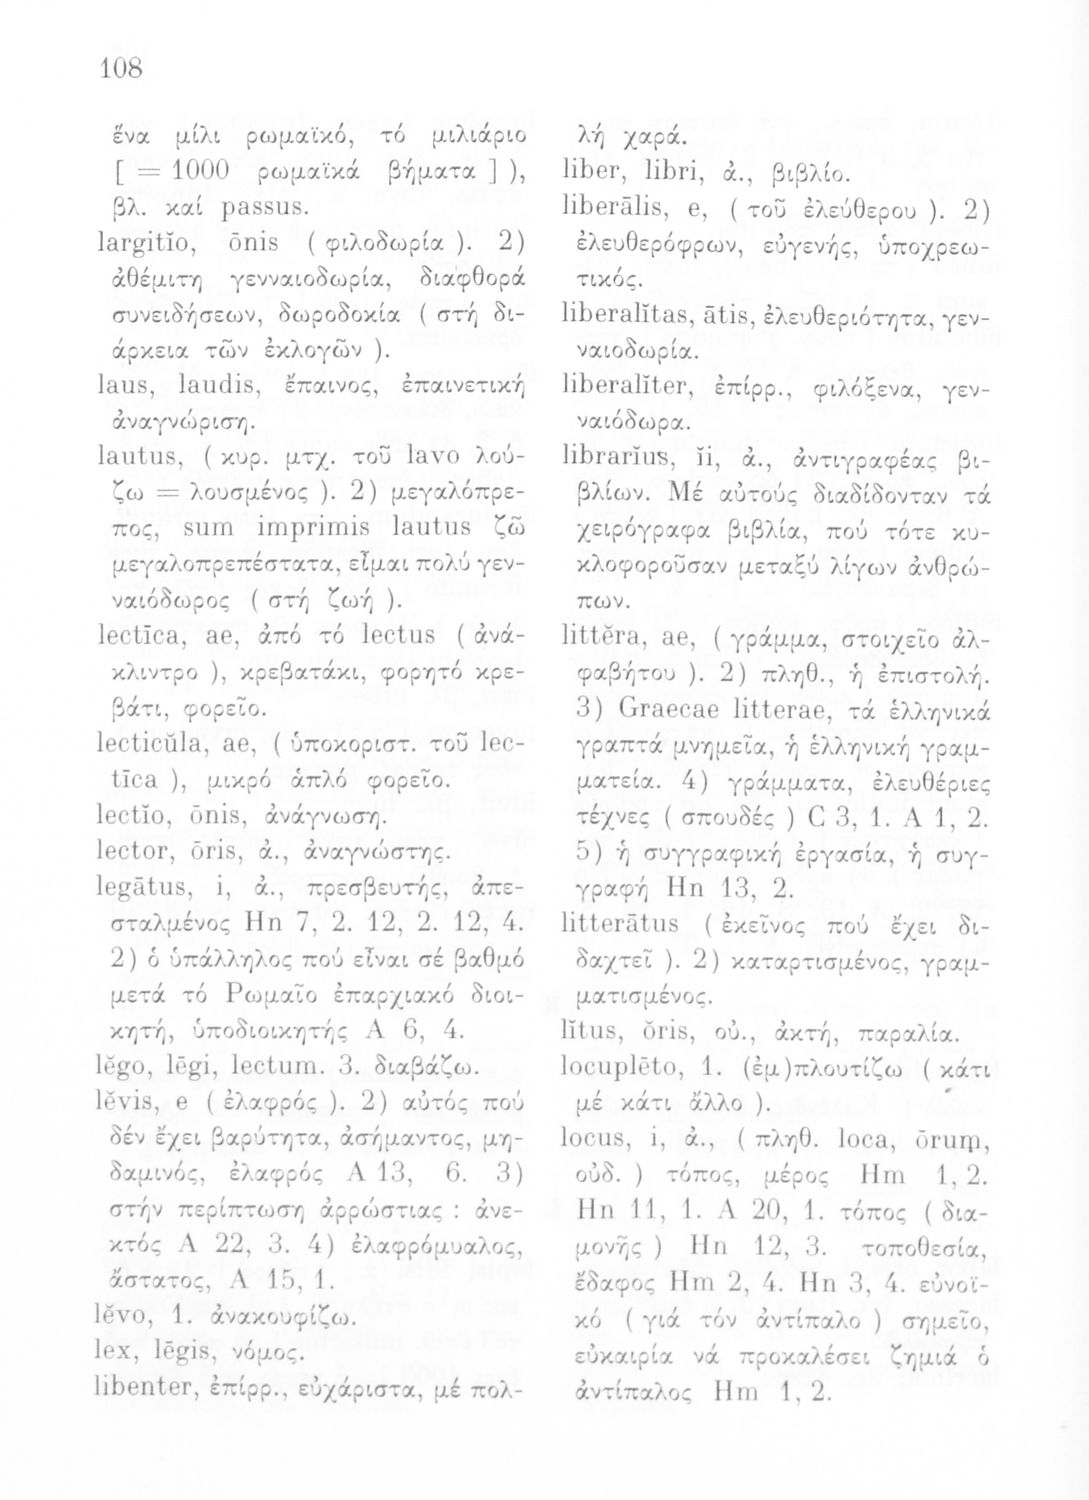 108
ἕνα μίλι ρωμαϊκό, τό μιλιάριο
[ = 1000 ρωμαϊκά βήματα ] ),
βλ. καί passus.
largitĭo, ōnis ( φιλοδωρία ). 2)
ἀθέμιτη γενναιοδωρία, διαφθορά
συνειδήσεων, δωροδοκία ( στή δι-
άρκεια τῶν ἐκλογῶν ).
laus, laudis, ἔπαινος, ἐπαινετική
ἀναγνώριση.
lautus, ( κυρ. μτχ. τοῦ lavo λού-
ζω = λουσμένος ). 2) μεγαλόπρε-
πος, sum imprimis lautus ζῶ
μεγαλοπρεπέστατα, εἶμαι πολύ γεν-
ναιόδωρος ( στή ζωή ).
lectīca, ae, ἀπό τό lectus ( ἀνά-
κλιντρο ), κρεβατάκι, φορητό κρε-
βάτι, φορεῖο.
lecticŭla, ae, ( ὑποκοριστ. τοῦ lec-
tīca ), μικρό ἁπλό φορεῖο.
lectĭo, ōnis, ἀνάγνωση.
lector, ōris, ἀ., ἀναγνώστης.
legātus, i, ἀ., πρεσβευτής, ἀπε-
σταλμένος Hn 7, 2. 12, 2. 12, 4.
2) ὁ ὑπάλληλος πού εἶναι σέ βαθμό
μετά τό Ρωμαῖο ἐπαρχιακό διοι-
κητή, ὑποδιοικητής A 6, 4.
lĕgo, lēgi, lectum. 3. διαβάζω.
lĕvis, e ( ἐλαφρός ). 2) αὐτός πού
δέν ἔχει βαρύτητα, ἀσήμαντος, μη-
δαμινός, ἐλαφρός A 13, 6. 3)
στήν περίπτωση ἀρρώστιας : ἀνε-
κτός A 22, 3. 4) ἐλαφρόμυαλος,
ἄστατος, A 15, 1.
lĕvo, 1. ἀνακουφίζω.
lex, lēgis, νόμος.
libenter, ἐπίρρ., εὐχάριστα, μέ πολ-
λή χαρά.
liber, libri, ἀ., βιβλίο.
liberālis, e, ( τοῦ ἐλεύθερου ). 2)
ἐλευθερόφρων, εὐγενής, ὑποχρεω-
τικός.
liberalĭtas, ātis, ἐλευθεριότητα, γεν-
ναιοδωρία.
liberalĭter, ἐπίρρ., φιλόξενα, γεν-
ναιόδωρα.
librarĭus, ĭi, ἀ., ἀντιγραφέας βι-
βλίων. Μέ αὐτούς διαδίδονταν τά
χειρόγραφα βιβλία, πού τότε κυ-
κλοφοροῦσαν μεταξύ λίγων ἀνθρώ-
πων.
littĕra, ae, ( γράμμα, στοιχεῖο ἀλ-
φαβήτου ). 2) πληθ., ἡ ἐπιστολή.
3) Graecae litterae, τά ἑλληνικά
γραπτά μνημεῖα, ἡ ἑλληνική γραμ-
ματεία. 4) γράμματα, ἐλευθέριες
τέχνες ( σπουδές ) C 3, 1. A 1, 2.
5) ἡ συγγραφική ἐργασία, ἡ συγ-
γραφή Hn 13, 2.
litterātus ( ἐκεῖνος πού ἔχει δι-
δαχτεῖ ). 2) καταρτισμένος, γραμ-
ματισμένος.
lītus, ŏris, οὐ., ἀκτή, παραλία.
locuplēto, 1. (ἐμ)πλουτίζω ( κάτι
μέ κάτι ἄλλο ).
locus, i, ἀ., ( πληθ. loca, ōrum,
οὐδ. ) τόπος, μέρος Hm 1, 2.
Hn 11, 1. A 20, 1. τόπος ( δια-
μονῆς ) Hn 12, 3. τοποθεσία,
ἔδαφος Hm 2, 4. Hn 3, 4. εὐνοϊ-
κό ( γιά τόν ἀντίπαλο ) σημεῖο,
εὐκαιρία νά προκαλέσει ζημιά ὁ
ἀντίπαλος Hm 1, 2.